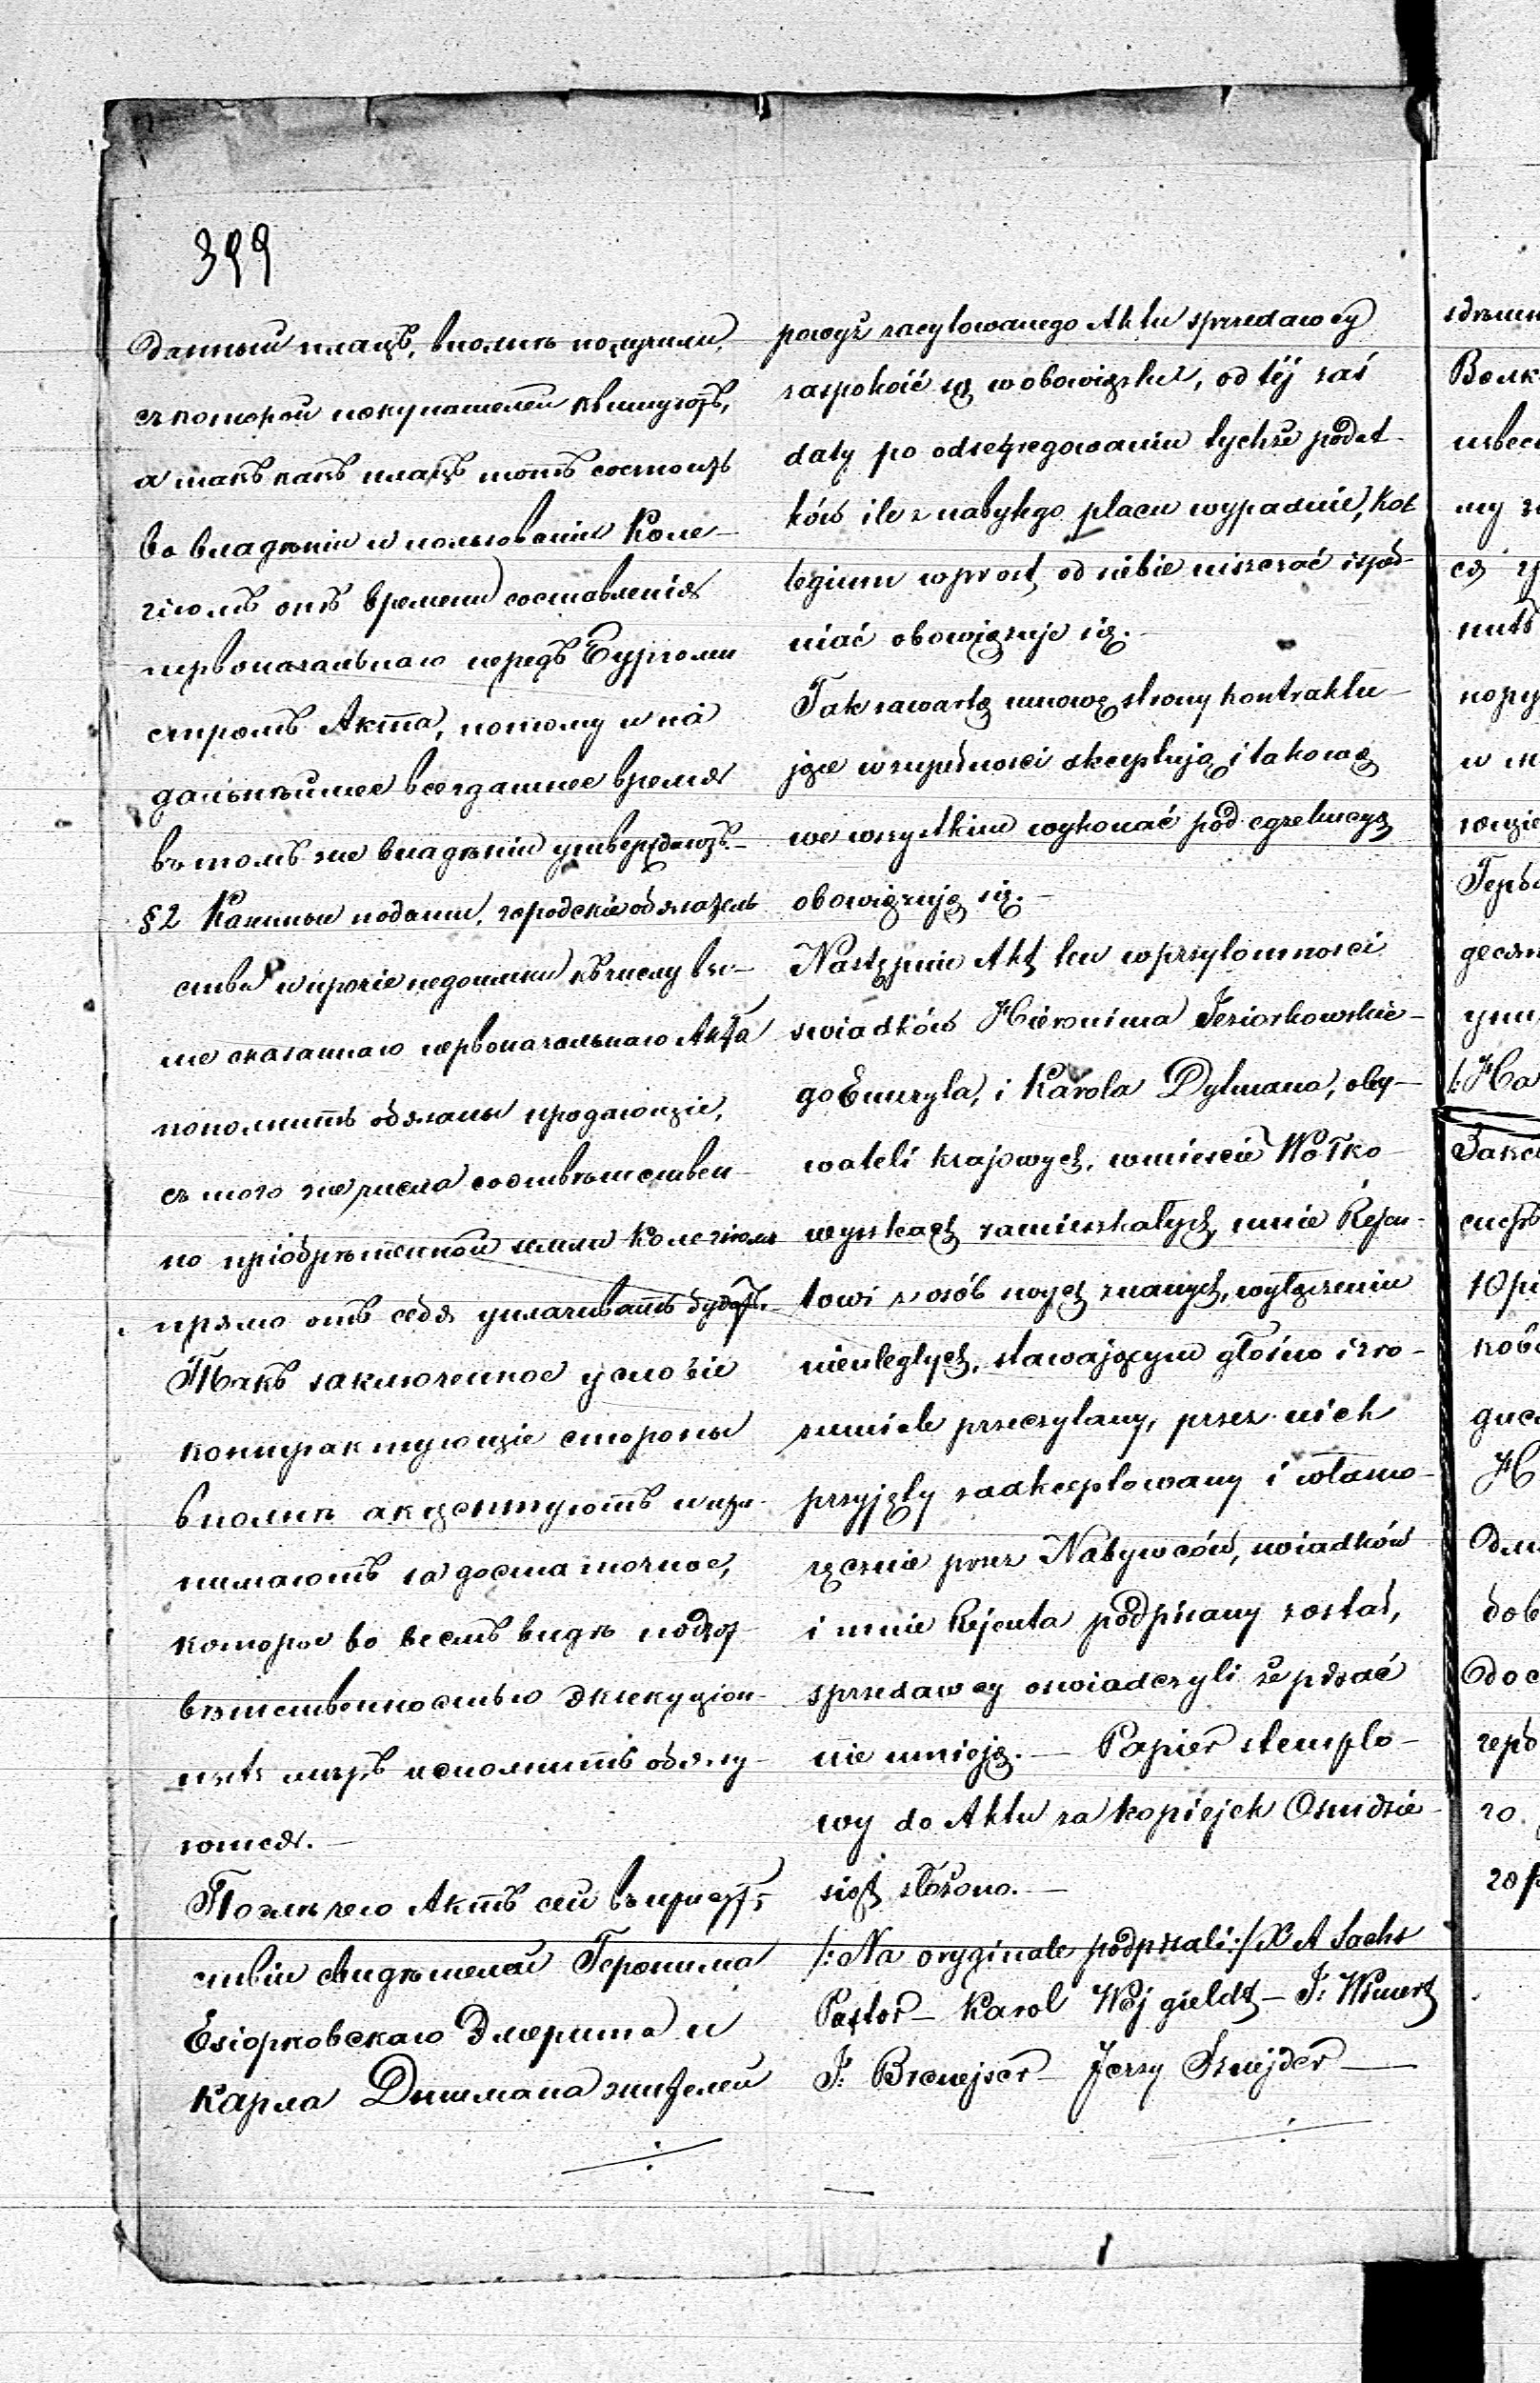 399
данный плацъ, вполнѣ получили,
съ которой покупателей квитуютъ,
а такъ какъ плацъ тотъ состоитъ
во владѣніи и пользованіи Коле-
гіюмъ отъ времени составленія
первоначальнаго передъ Бургоми
стромъ Акта, потому и на
дальнѣйшее всегдашнее время
въ томъ же владѣніи утверждаютъ.-
§2 Казенныя подати, городскіе обязатель
ства и прочіе недоимки къ числу вы-
ше сказаннаго первоначальнаго Акта
пополнить обязаны продающіе,
съ того же числа соотвѣтствен-
но пріобрѣтенной земли Колегіюмъ
прямо отъ себя уплачивать будетъ.-
Такъ заключенное условіе
контрактующіе стороны
вполнѣ акцептуютъ и при-
нимаютъ за достаточное,
которое во всемъ видѣ подъ от-
вѣтственностью экзекуціон-
ныхъ мѣръ исполнить обязу-
ются.-
Послѣ чего Актъ сей въ присут-
ствіи свидѣтелей Геронима
Езіорковскаго Эмерита и
Карла Дитмана жителей
powyż zacytowanego Aktu sprzedawcy
zaspokoić są w obowiązku, od téj zaś
daty po odsegregowaniu tychże podat-
ków ile z nabytego placu wypadnie, Kol
legium wprost od siebie uiszczać i speł-
niać obowięzuje się.-
Tak zawartą umowę strony kontraktu-
jące w zupełności akceptują i takową
we wszystkiem wykonać pod egzekucyą
obowięzują się.-
Następnie Akt ten w przytomności
swiadków Hieronima Jeziorkowskie-
go Emeryta, i Karola Dytmana, oby-
wateli krajowych, w mieście Wołko-
wyszkach zamieszkałych, mnie Rejen-
towi z osób swych znanych, wyłączeniu
nieuległych, stawającym głośno i zro-
zumiale przeczytany, przez nich
przyjęty zaakceptowany i własno-
ręcznie przez Nabywców, swiadków
i mnie Rejenta podpisany został,
sprzedawcy oswiadczyli że pisać
nie umieją.- Papier stemplo-
wy do Aktu za kopiejek Osmdzie-
siąt złożono.-
/: Na oryginale podpisali:/ X A Sachs
Pastor - Karol - J:
J: - Jerzy Sznejder -